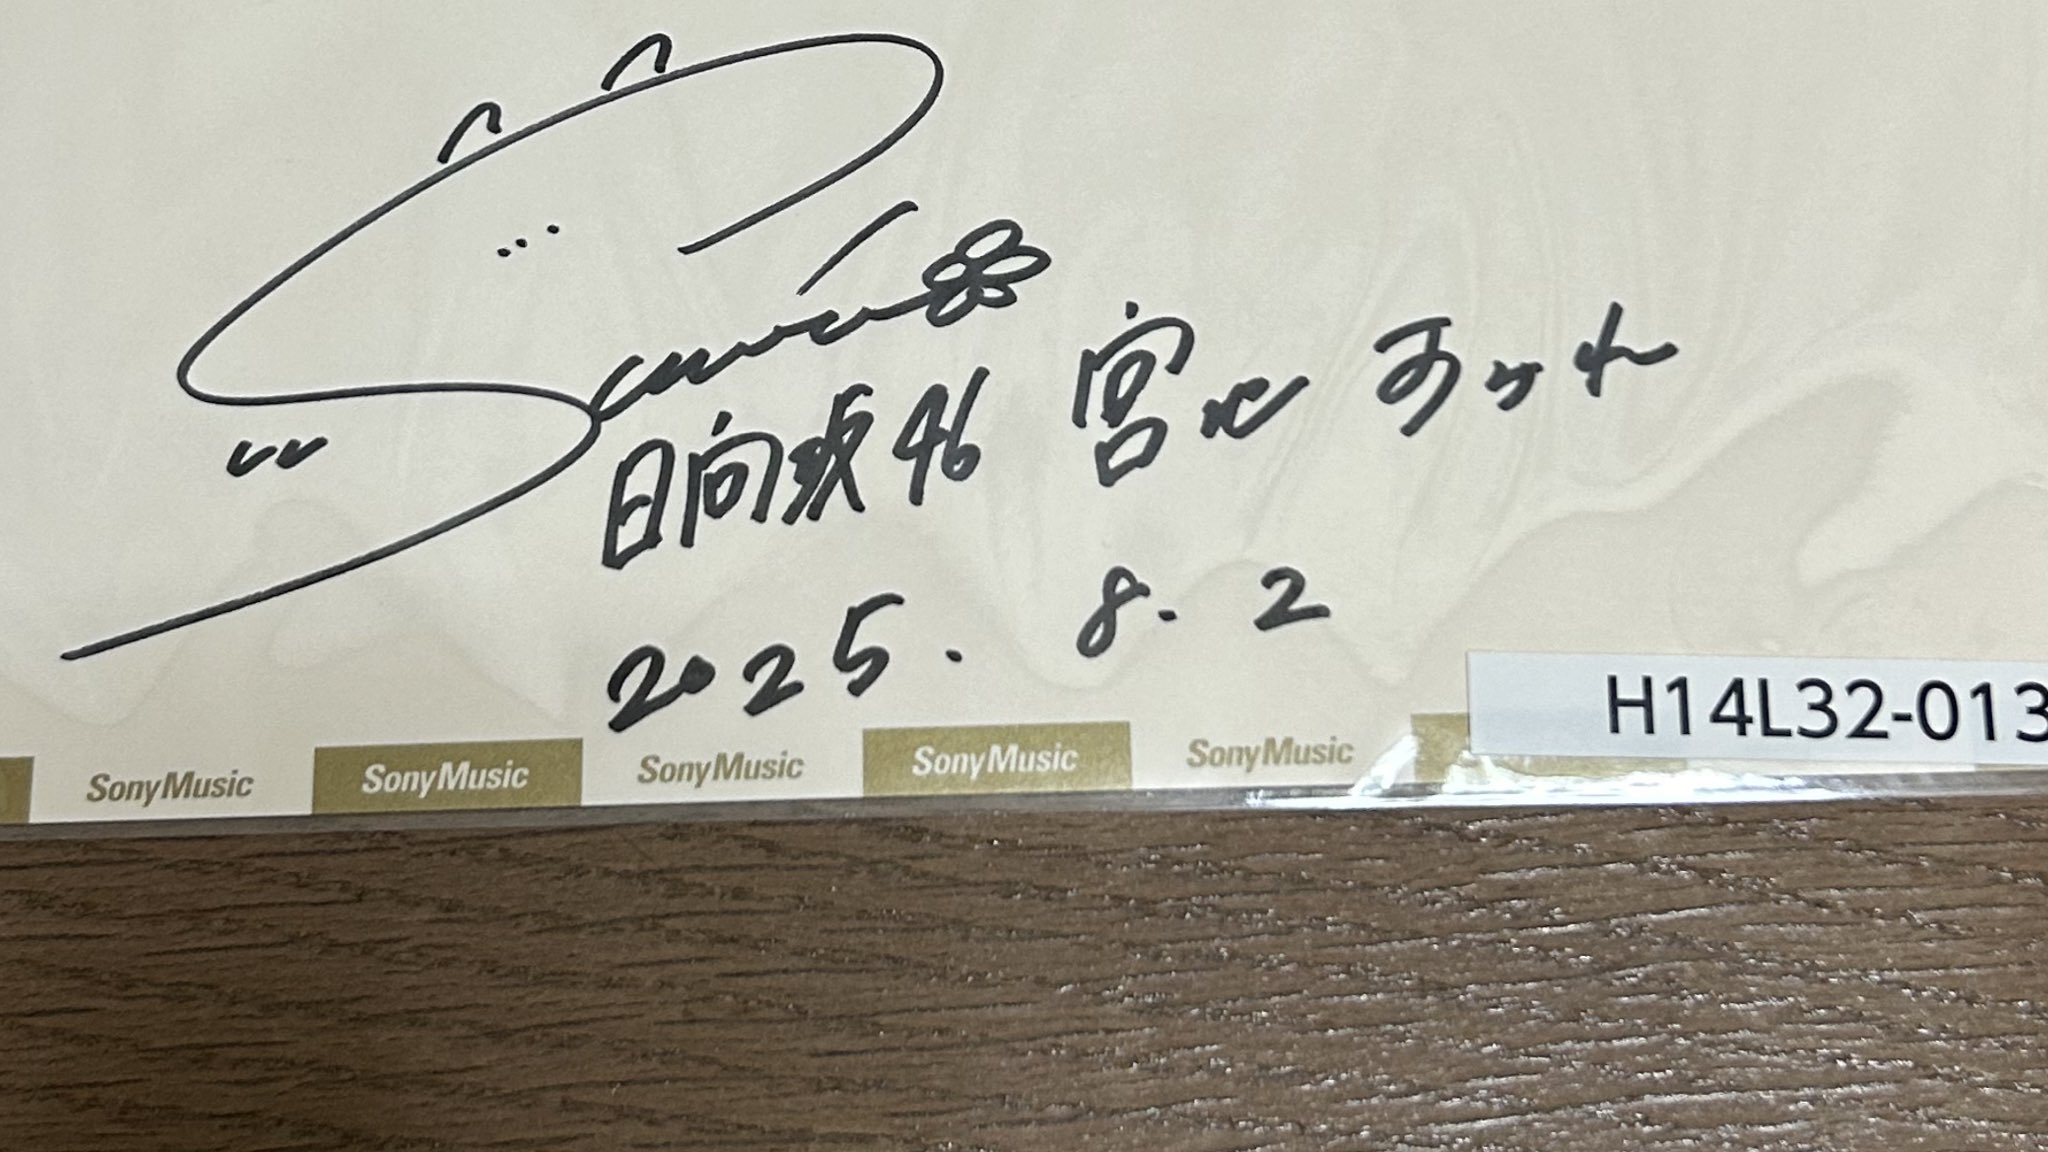 日向坂46 宮地 すみれ
2025. 8. 2
H14L32-013
SonyMusic SonyMusic SonyMusic SonyMusic SonyMusic